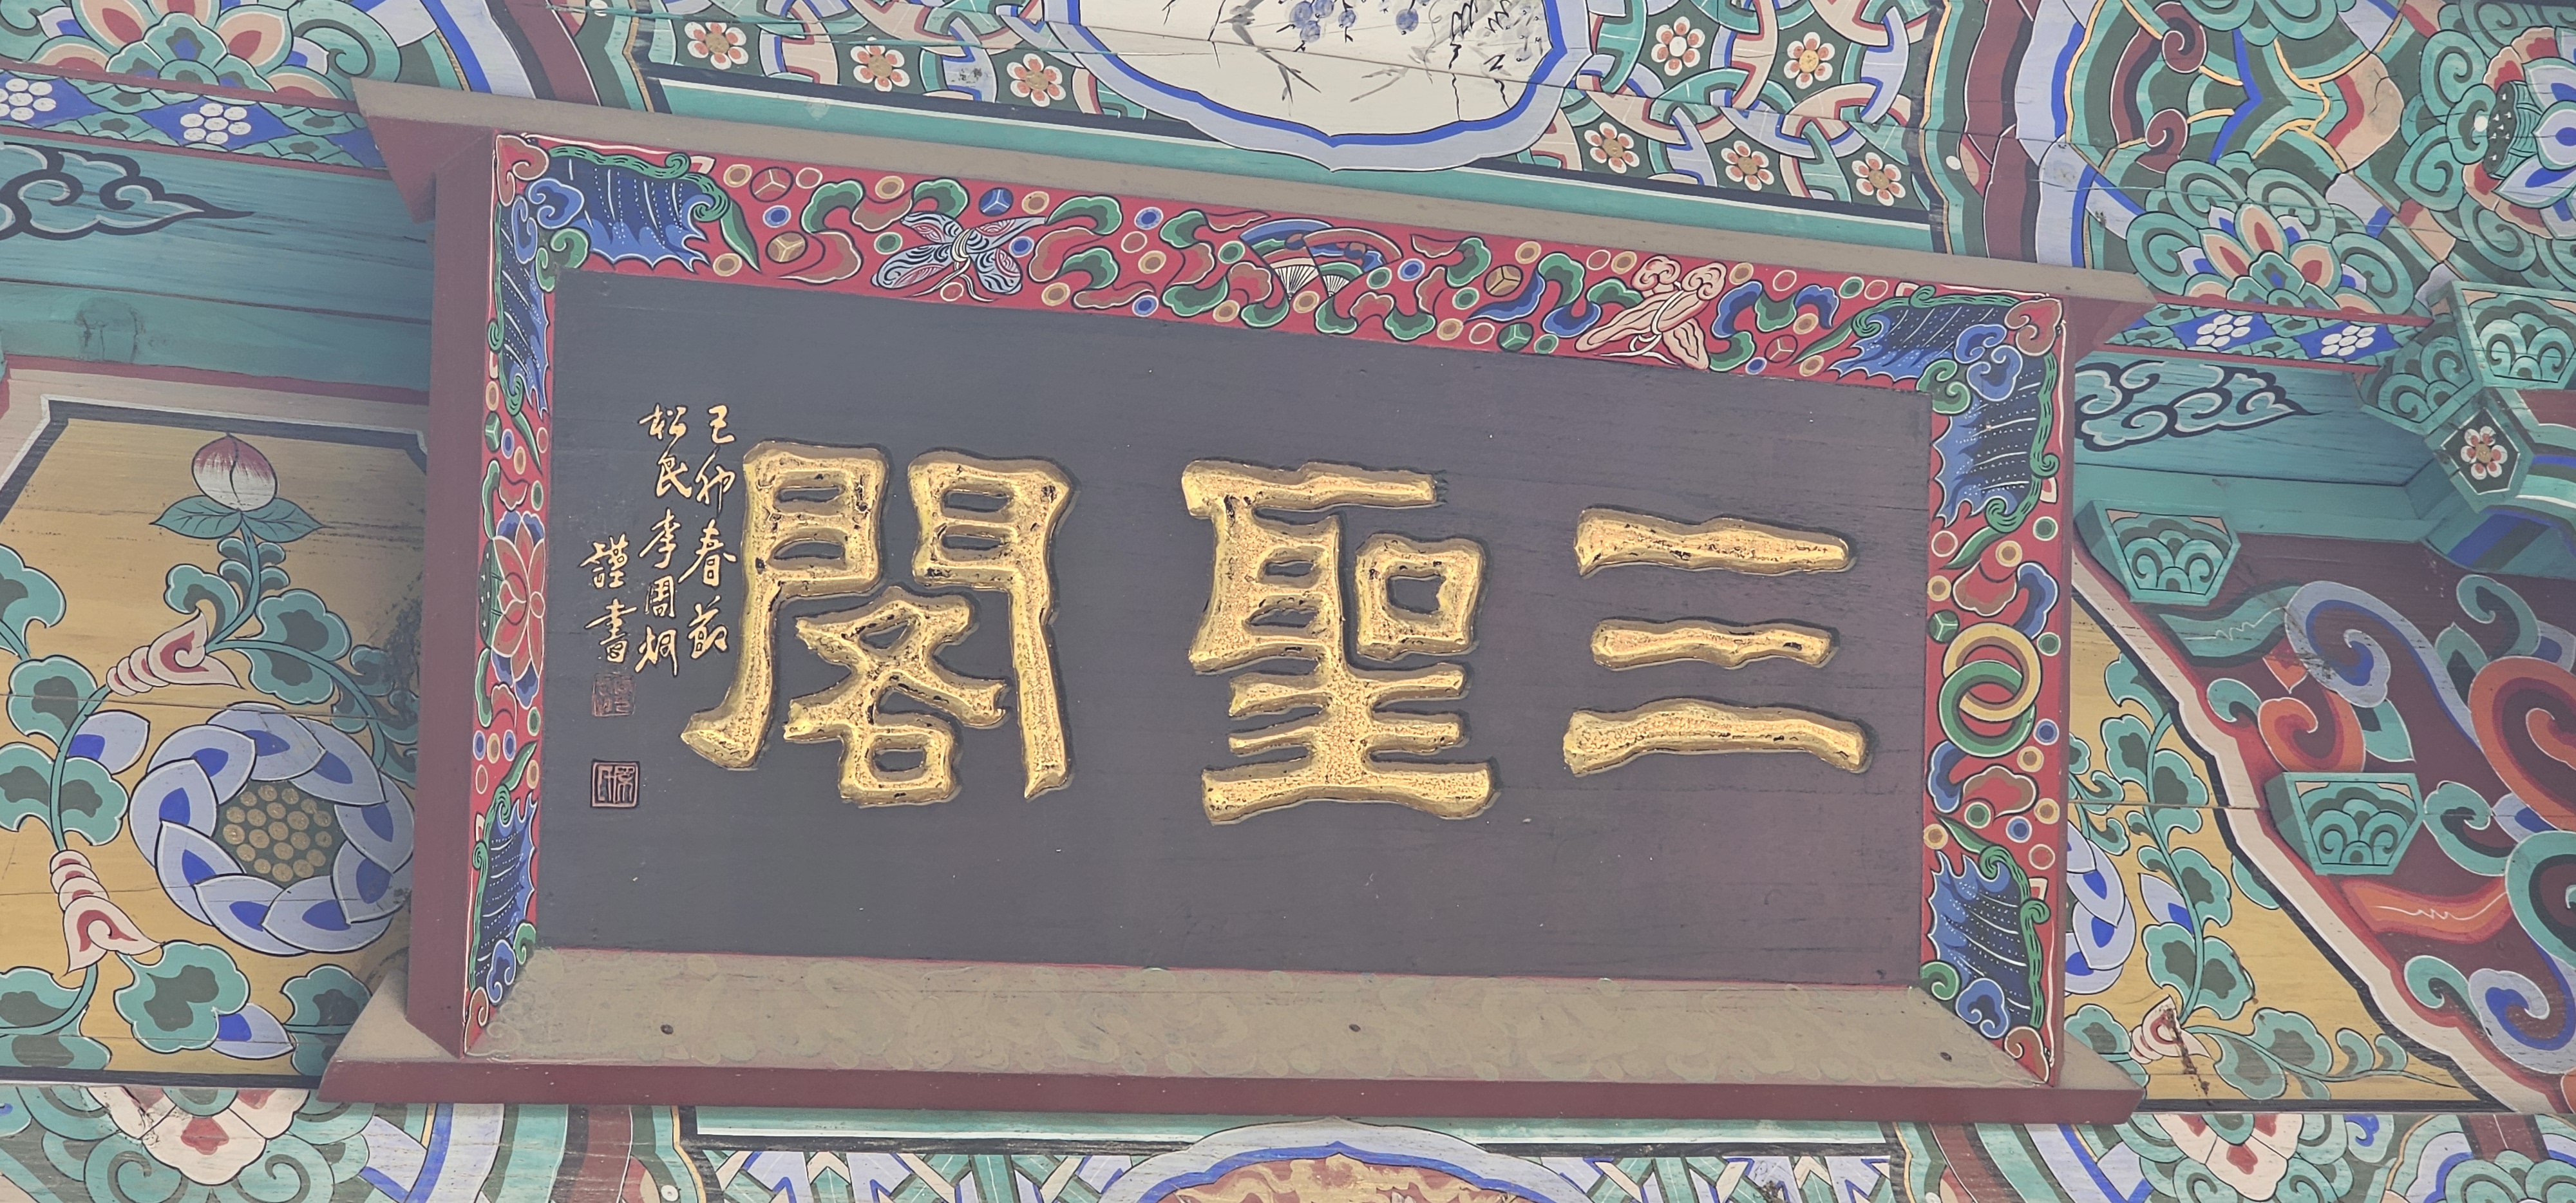 三聖閣
己卯春節
松民李周炯
謹書